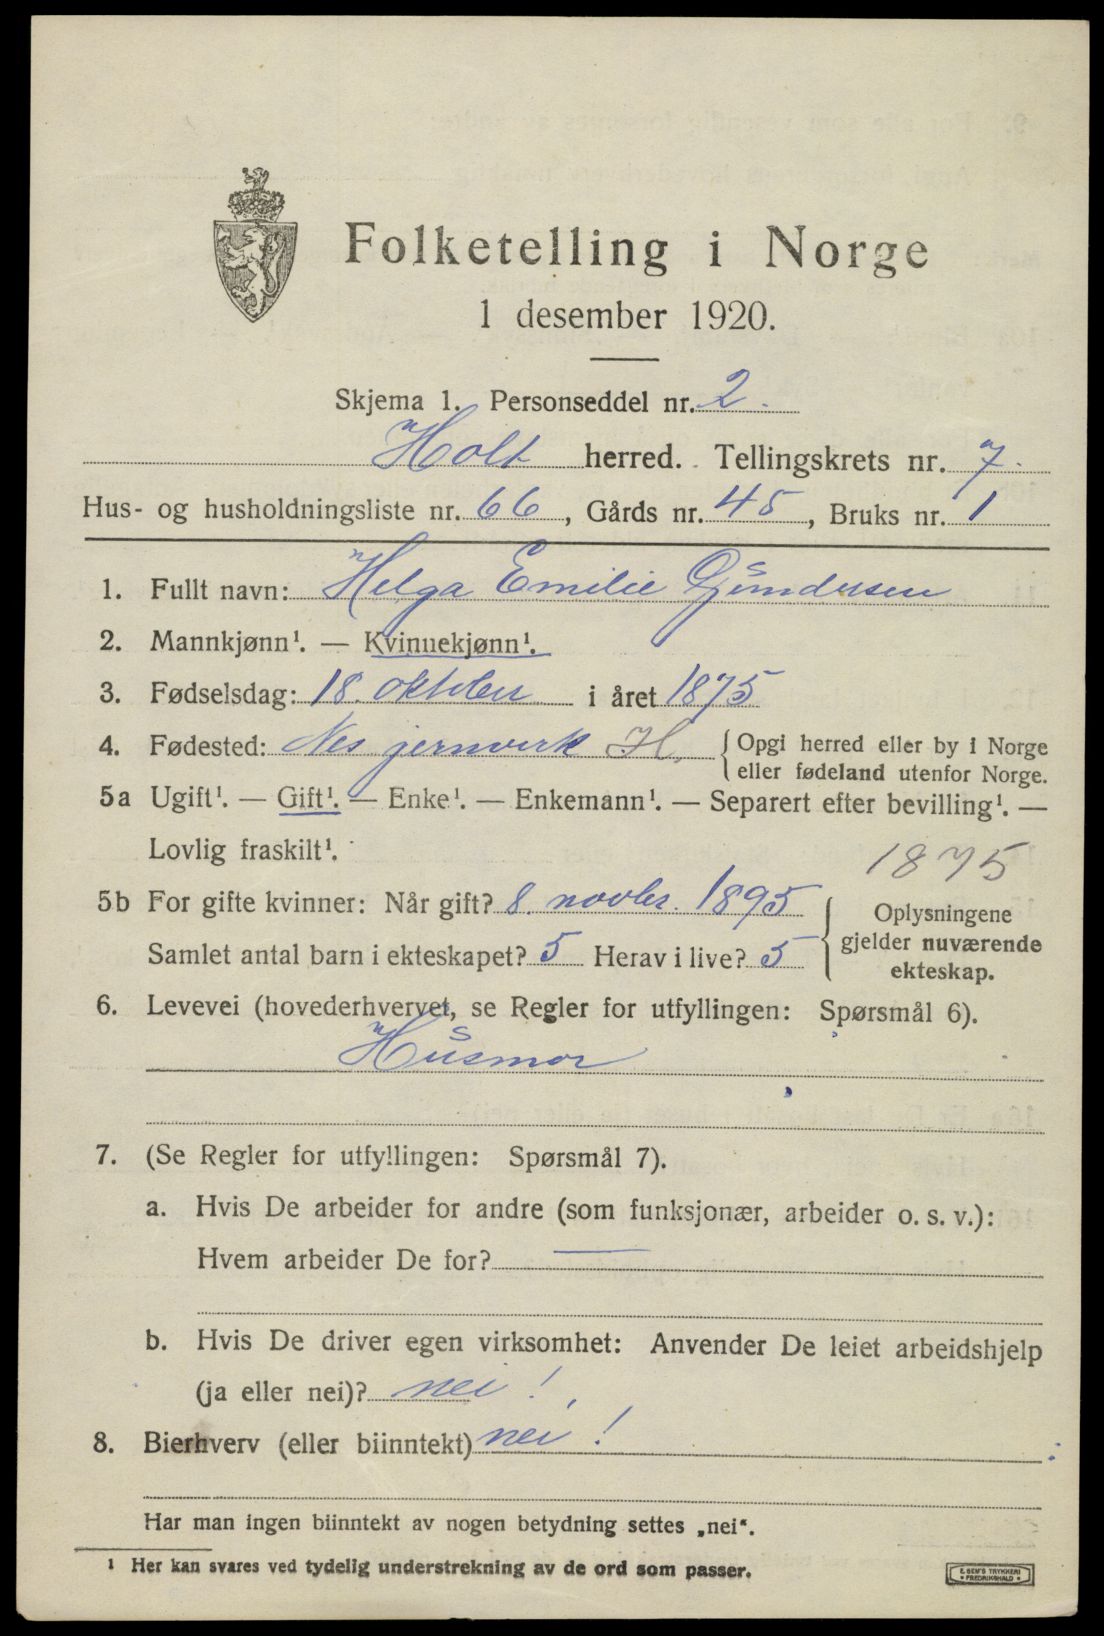 Folketelling i Norge
1 desember 1920.
Skjema 1. Personseddel nr. 2.
Holt herred. Tellingskrets nr. 7.
Hus- og husholdningsliste nr. 66, Gårds nr. 45, Bruks nr. 1
1. Fullt navn: Helga Emilie Gundersen
2. Mannkjønn¹. — Kvinnekjønn¹.
3. Fødselsdag: 18. oktober i året 1875
4. Fødested: Nes jernverk H. { Opgi herred eller by i Norge
eller fødeland utenfor Norge.
5a Ugift¹. — Gift¹. — Enke¹. — Enkemann¹. — Separert efter bevilling¹. —
Lovlig fraskilt¹.
1875
5b For gifte kvinner: Når gift? 8. novbr. 1895
Samlet antal barn i ekteskapet? 5 Herav i live? 5
} Oplysningene
gjelder nuværende
ekteskap.
6. Levevei (hovederhvervet, se Regler for utfyllingen: Spørsmål 6).
Husmor
7. (Se Regler for utfyllingen: Spørsmål 7).
a. Hvis De arbeider for andre (som funksjonær, arbeider o. s. v.):
Hvem arbeider De for? —
b. Hvis De driver egen virksomhet: Anvender De leiet arbeidshjelp
(ja eller nei)? nei!
8. Bierhverv (eller biinntekt) nei!
Har man ingen biinntekt av nogen betydning settes „nei“.
¹ Her kan svares ved tydelig understrekning av de ord som passer.
E. SEM'S TRYKKERI
• FREDRIKSHALD •